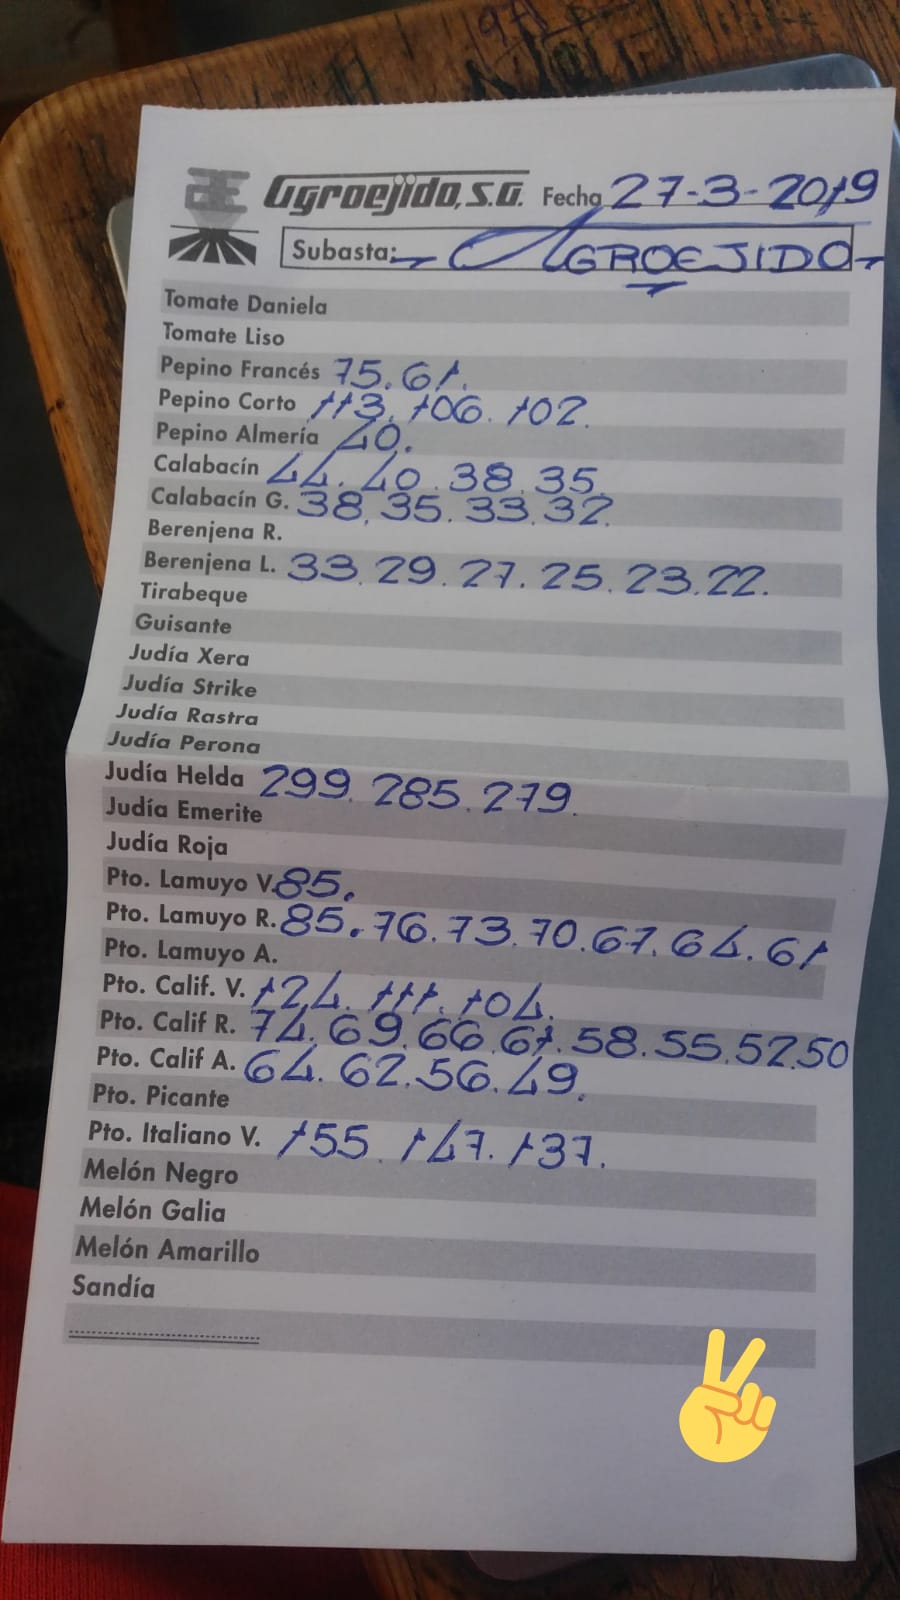 Agroejido, S.A. Fecha 27-3-2019
Subasta: AGROEJIDO
Tomate Daniela
Tomate Liso
Pepino Francés 75. 61.
Pepino Corto 113. 106. 102.
Pepino Almería 40.
Calabacín 44. 40. 38. 35
Calabacín G. 38. 35. 33. 32.
Berenjena R.
Berenjena L. 33. 29. 27. 25. 23. 22.
Tirabeque
Guisante
Judía Xera
Judía Strike
Judía Rastra
Judía Perona
Judía Helda 299. 285. 279.
Judía Emerite
Judía Roja
Pto. Lamuyo V. 85.
Pto. Lamuyo R. 85. 76. 73. 70. 67. 64. 61
Pto. Lamuyo A.
Pto. Calif. V. 124. 111. 104.
Pto. Calif R. 74. 69. 66. 61. 58. 55. 52. 50
Pto. Calif A. 64. 62. 56. 49.
Pto. Picante
Pto. Italiano V. 155. 147. 137.
Melón Negro
Melón Galia
Melón Amarillo
Sandía